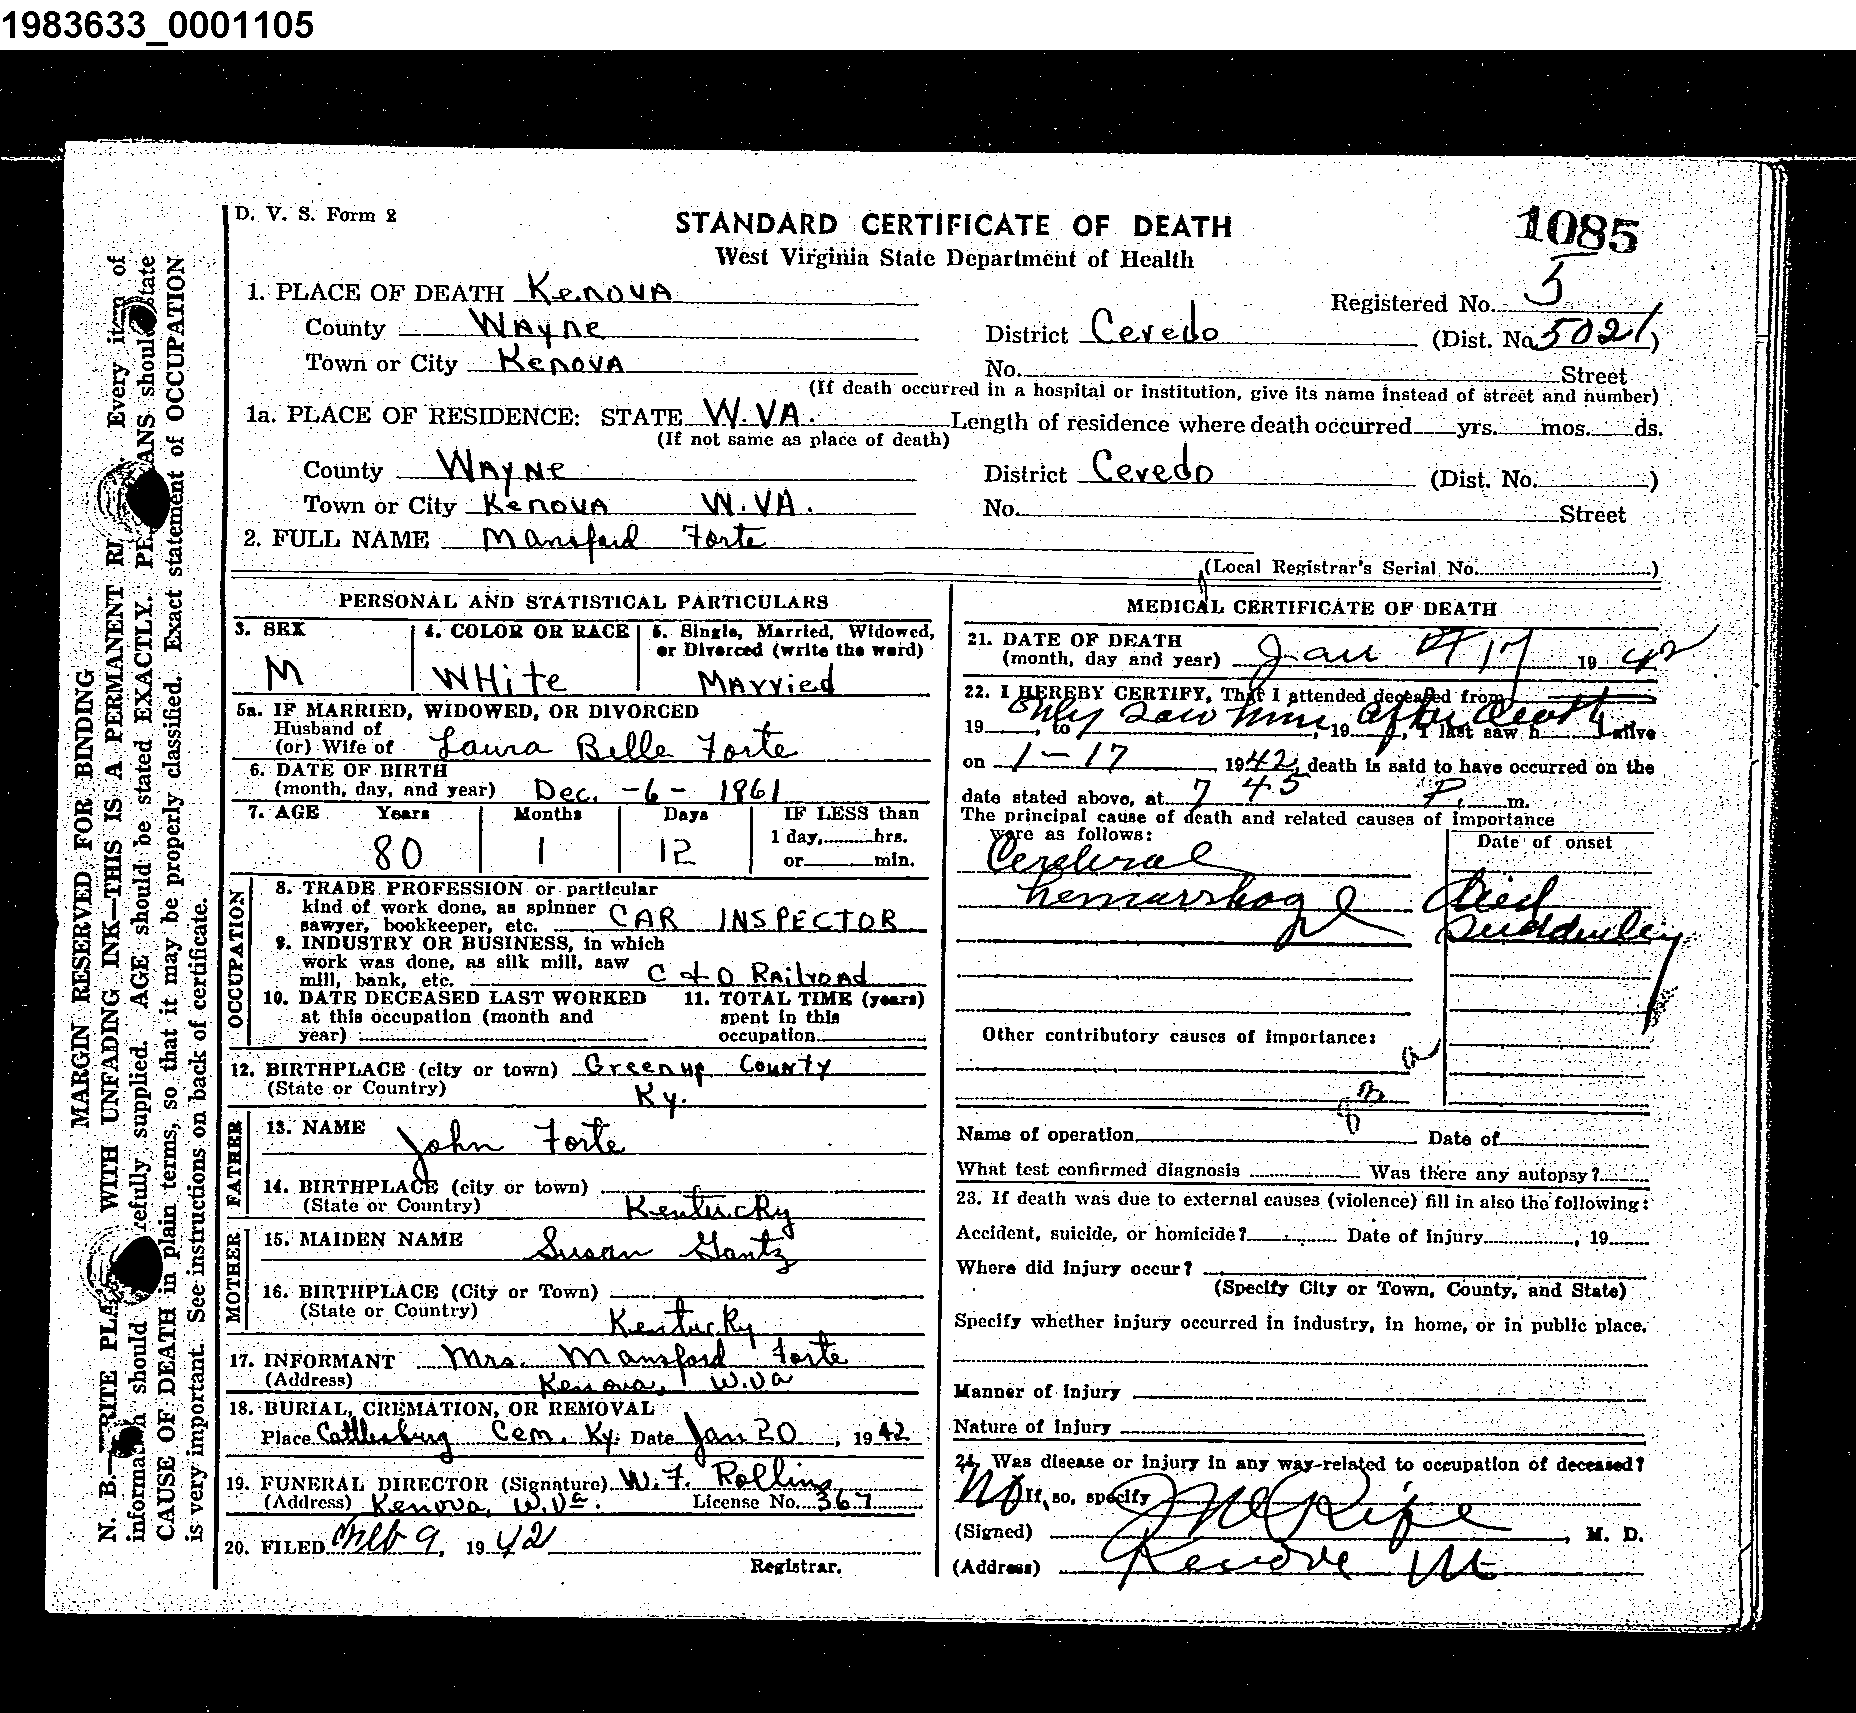 1983633_0001105
D. V. S. Form 2
STANDARD CERTIFICATE OF DEATH
West Virginia State Department of Health
1085
1. PLACE OF DEATH Kenova
Registered No. 5
County Wayne
District Ceredo (Dist. No. 5021)
Town or City Kenova
No. Street
(If death occurred in a hospital or institution, give its name instead of street and number)
1a. PLACE OF RESIDENCE: STATE W.VA. Length of residence where death occurred yrs. mos. ds.
(If not same as place of death)
County Wayne
District Ceredo (Dist. No. )
Town or City Kenova W.VA.
No. Street
2. FULL NAME Mansford Forte
(Local Registrar's Serial No. )
PERSONAL AND STATISTICAL PARTICULARS
3. SEX
M
4. COLOR OR RACE
WHite
5. Single, Married, Widowed,
or Divorced (write the word)
Married
5a. IF MARRIED, WIDOWED, OR DIVORCED
Husband of
(or) Wife of Laura Belle Forte
6. DATE OF BIRTH
(month, day, and year) Dec. -6- 1861
7. AGE Years Months Days IF LESS than
1 day, hrs.
80 1 12 or min.
OCCUPATION
8. TRADE PROFESSION or particular
kind of work done, as spinner
sawyer, bookkeeper, etc. CAR INSPECTOR
9. INDUSTRY OR BUSINESS, in which
work was done, as silk mill, saw
mill, bank, etc. C & O Railroad
10. DATE DECEASED LAST WORKED
at this occupation (month and
year)
11. TOTAL TIME (years)
spent in this
occupation
12. BIRTHPLACE (city or town) Greenup County
(State or Country) Ky.
FATHER
13. NAME John Forte
14. BIRTHPLACE (city or town)
(State or Country) Kentucky
MOTHER
15. MAIDEN NAME Susan Gantz
16. BIRTHPLACE (City or Town)
(State or Country) Kentucky
17. INFORMANT Mrs. Mansford Forte
(Address) Kenova, W.Va
18. BURIAL, CREMATION, OR REMOVAL
Place Catlesburg Cem. Ky. Date Jan 20, 1942
19. FUNERAL DIRECTOR (Signature) W. F. Rollins
(Address) Kenova, W.Va. License No. 367
20. FILED Feb 9, 1942
Registrar.
MEDICAL CERTIFICATE OF DEATH
21. DATE OF DEATH
(month, day and year) Jan 17 1942
22. I HEREBY CERTIFY, That I attended deceased from
Only saw him after death
19 , to , 19 , I last saw h alive
on 1-17 1942, death is said to have occurred on the
date stated above, at 7 45 P. m.
The principal cause of death and related causes of importance
were as follows:
Date of onset
Cerebral
hemorrhage
Died
Suddenley
Other contributory causes of importance:
Name of operation Date of
What test confirmed diagnosis Was there any autopsy?
23. If death was due to external causes (violence) fill in also the following:
Accident, suicide, or homicide? Date of injury , 19
Where did injury occur?
(Specify City or Town, County, and State)
Specify whether injury occurred in industry, in home, or in public place.
Manner of injury
Nature of injury
24. Was disease or injury in any way related to occupation of deceased?
No If so, specify
(Signed) Rife, M. D.
(Address) Kenova
MARGIN RESERVED FOR BINDING
N. B.—WRITE PLA WITH UNFADING INK—THIS IS A PERMANENT RE Every item of
information should refully supplied. AGE should be stated EXACTLY. PH ANS should state
CAUSE OF DEATH in plain terms, so that it may be properly classified. Exact statement of OCCUPATION
is very important. See instructions on back of certificate.